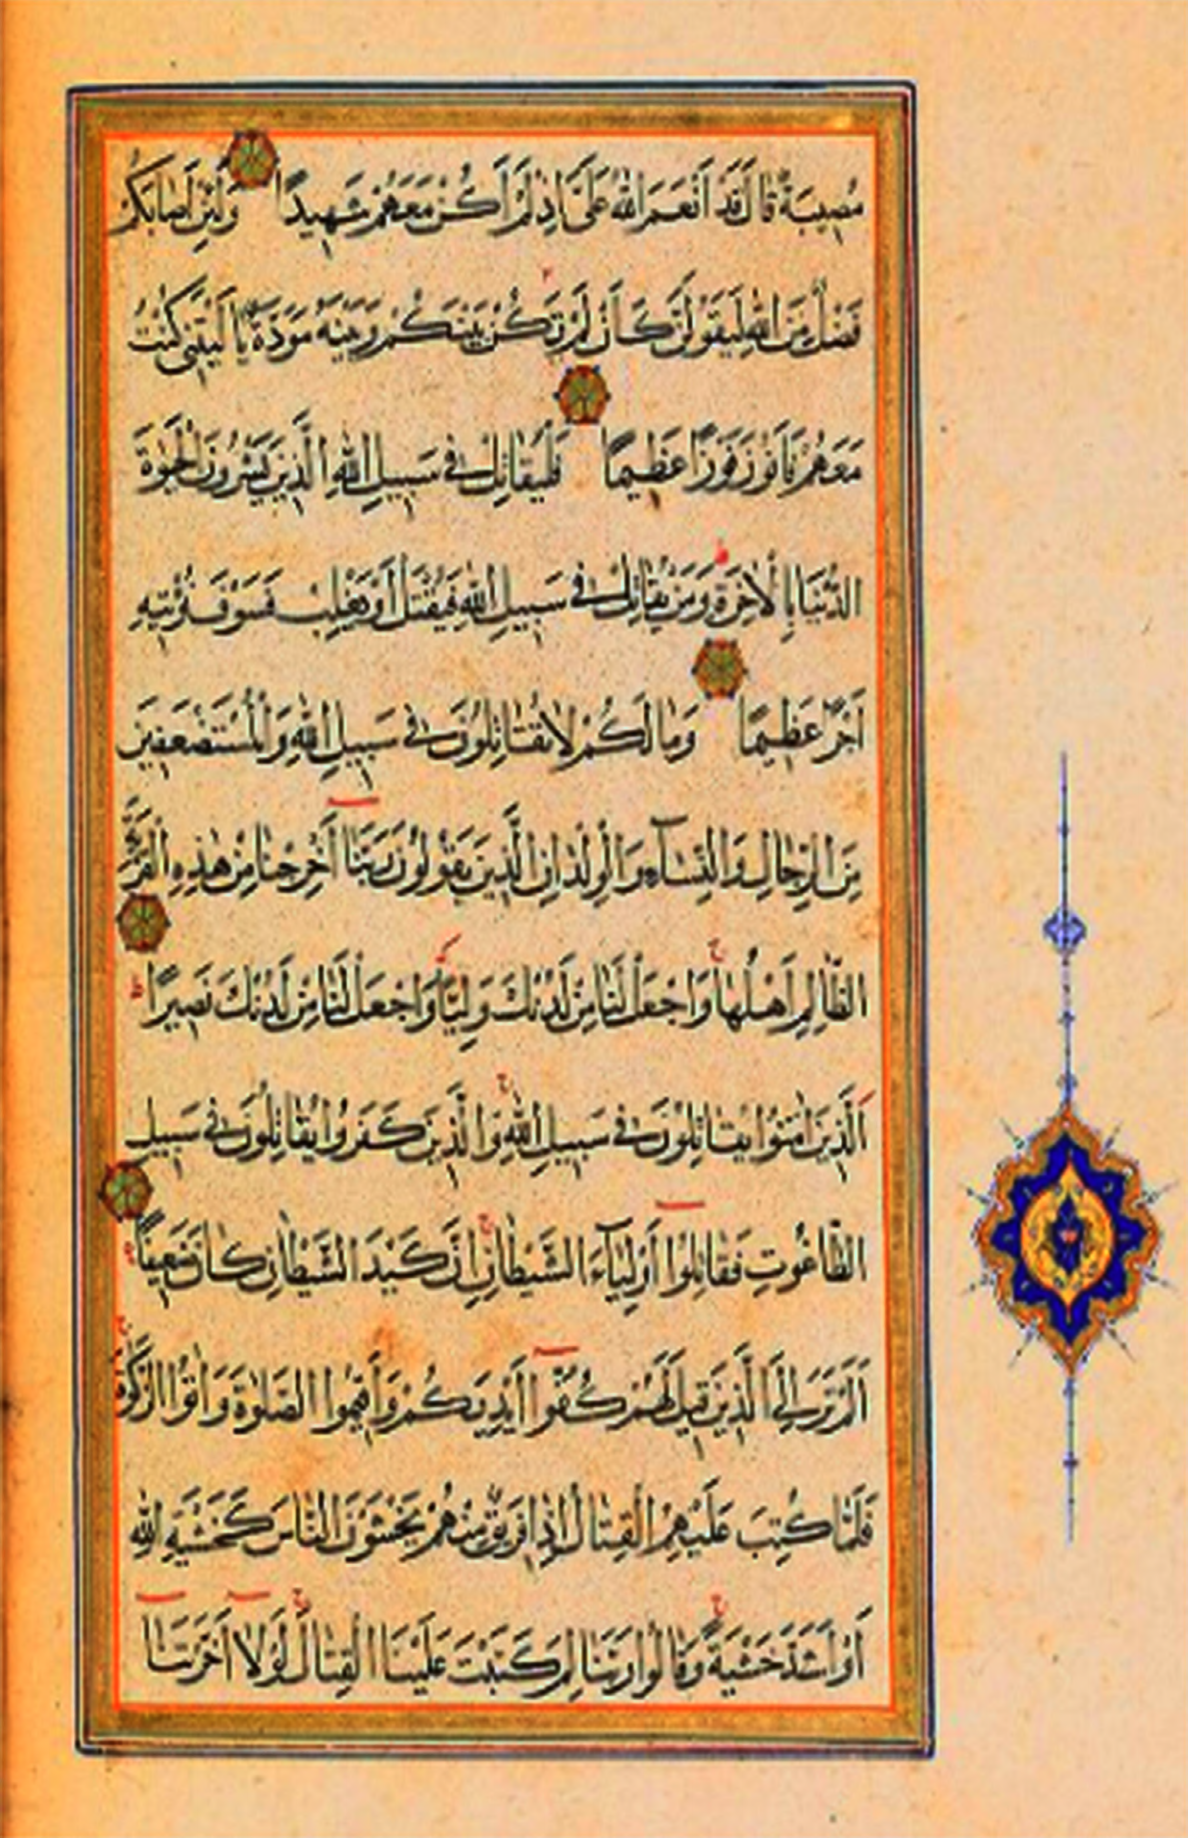 مُصِيبَةٌ قَالَ قَدْ أَنْعَمَ اللَّهُ عَلَيَّ إِذْ لَمْ أَكُنْ مَعَهُمْ شَهِيدًا وَلَئِنْ أَصَابَكُمْ
فَضْلٌ مِنَ اللَّهِ لَيَقُولَنَّ كَأَنْ لَمْ تَكُنْ بَيْنَكُمْ وَبَيْنَهُ مَوَدَّةٌ يَا لَيْتَنِي كُنْتُ
مَعَهُمْ فَأَفُوزَ فَوْزًا عَظِيمًا فَلْيُقَاتِلْ فِي سَبِيلِ اللَّهِ الَّذِينَ يَشْرُونَ الْحَيٰوةَ
الدُّنْيَا بِالْآخِرَةِ وَمَنْ يُقَاتِلْ فِي سَبِيلِ اللَّهِ فَيُقْتَلْ أَوْ يَغْلِبْ فَسَوْفَ نُؤْتِيهِ
أَجْرًا عَظِيمًا وَمَا لَكُمْ لَا تُقَاتِلُونَ فِي سَبِيلِ اللَّهِ وَالْمُسْتَضْعَفِينَ
مِنَ الرِّجَالِ وَالنِّسَآءِ وَالْوِلْدَانِ الَّذِينَ يَقُولُونَ رَبَّنَا أَخْرِجْنَا مِنْ هٰذِهِ الْقَرْيَةِ
الظَّالِمِ أَهْلُهَا وَاجْعَلْ لَنَا مِنْ لَدُنْكَ وَلِيًّا وَاجْعَلْ لَنَا مِنْ لَدُنْكَ نَصِيرًا ط
الَّذِينَ اٰمَنُوا يُقَاتِلُونَ فِي سَبِيلِ اللَّهِ وَالَّذِينَ كَفَرُوا يُقَاتِلُونَ فِي سَبِيلِ
الطَّاغُوتِ فَقَاتِلُوا أَوْلِيَآءَ الشَّيْطَانِ إِنَّ كَيْدَ الشَّيْطَانِ كَانَ ضَعِيفًا
أَلَمْ تَرَ إِلَى الَّذِينَ قِيلَ لَهُمْ كُفُّوا أَيْدِيَكُمْ وَأَقِيمُوا الصَّلٰوةَ وَاٰتُوا الزَّكٰوةَ
فَلَمَّا كُتِبَ عَلَيْهِمُ الْقِتَالُ إِذَا فَرِيقٌ مِنْهُمْ يَخْشَوْنَ النَّاسَ كَخَشْيَةِ اللَّهِ
أَوْ أَشَدَّ خَشْيَةً وَقَالُوا رَبَّنَا لِمَ كَتَبْتَ عَلَيْنَا الْقِتَالَ لَوْلَا أَخَّرْتَنَا